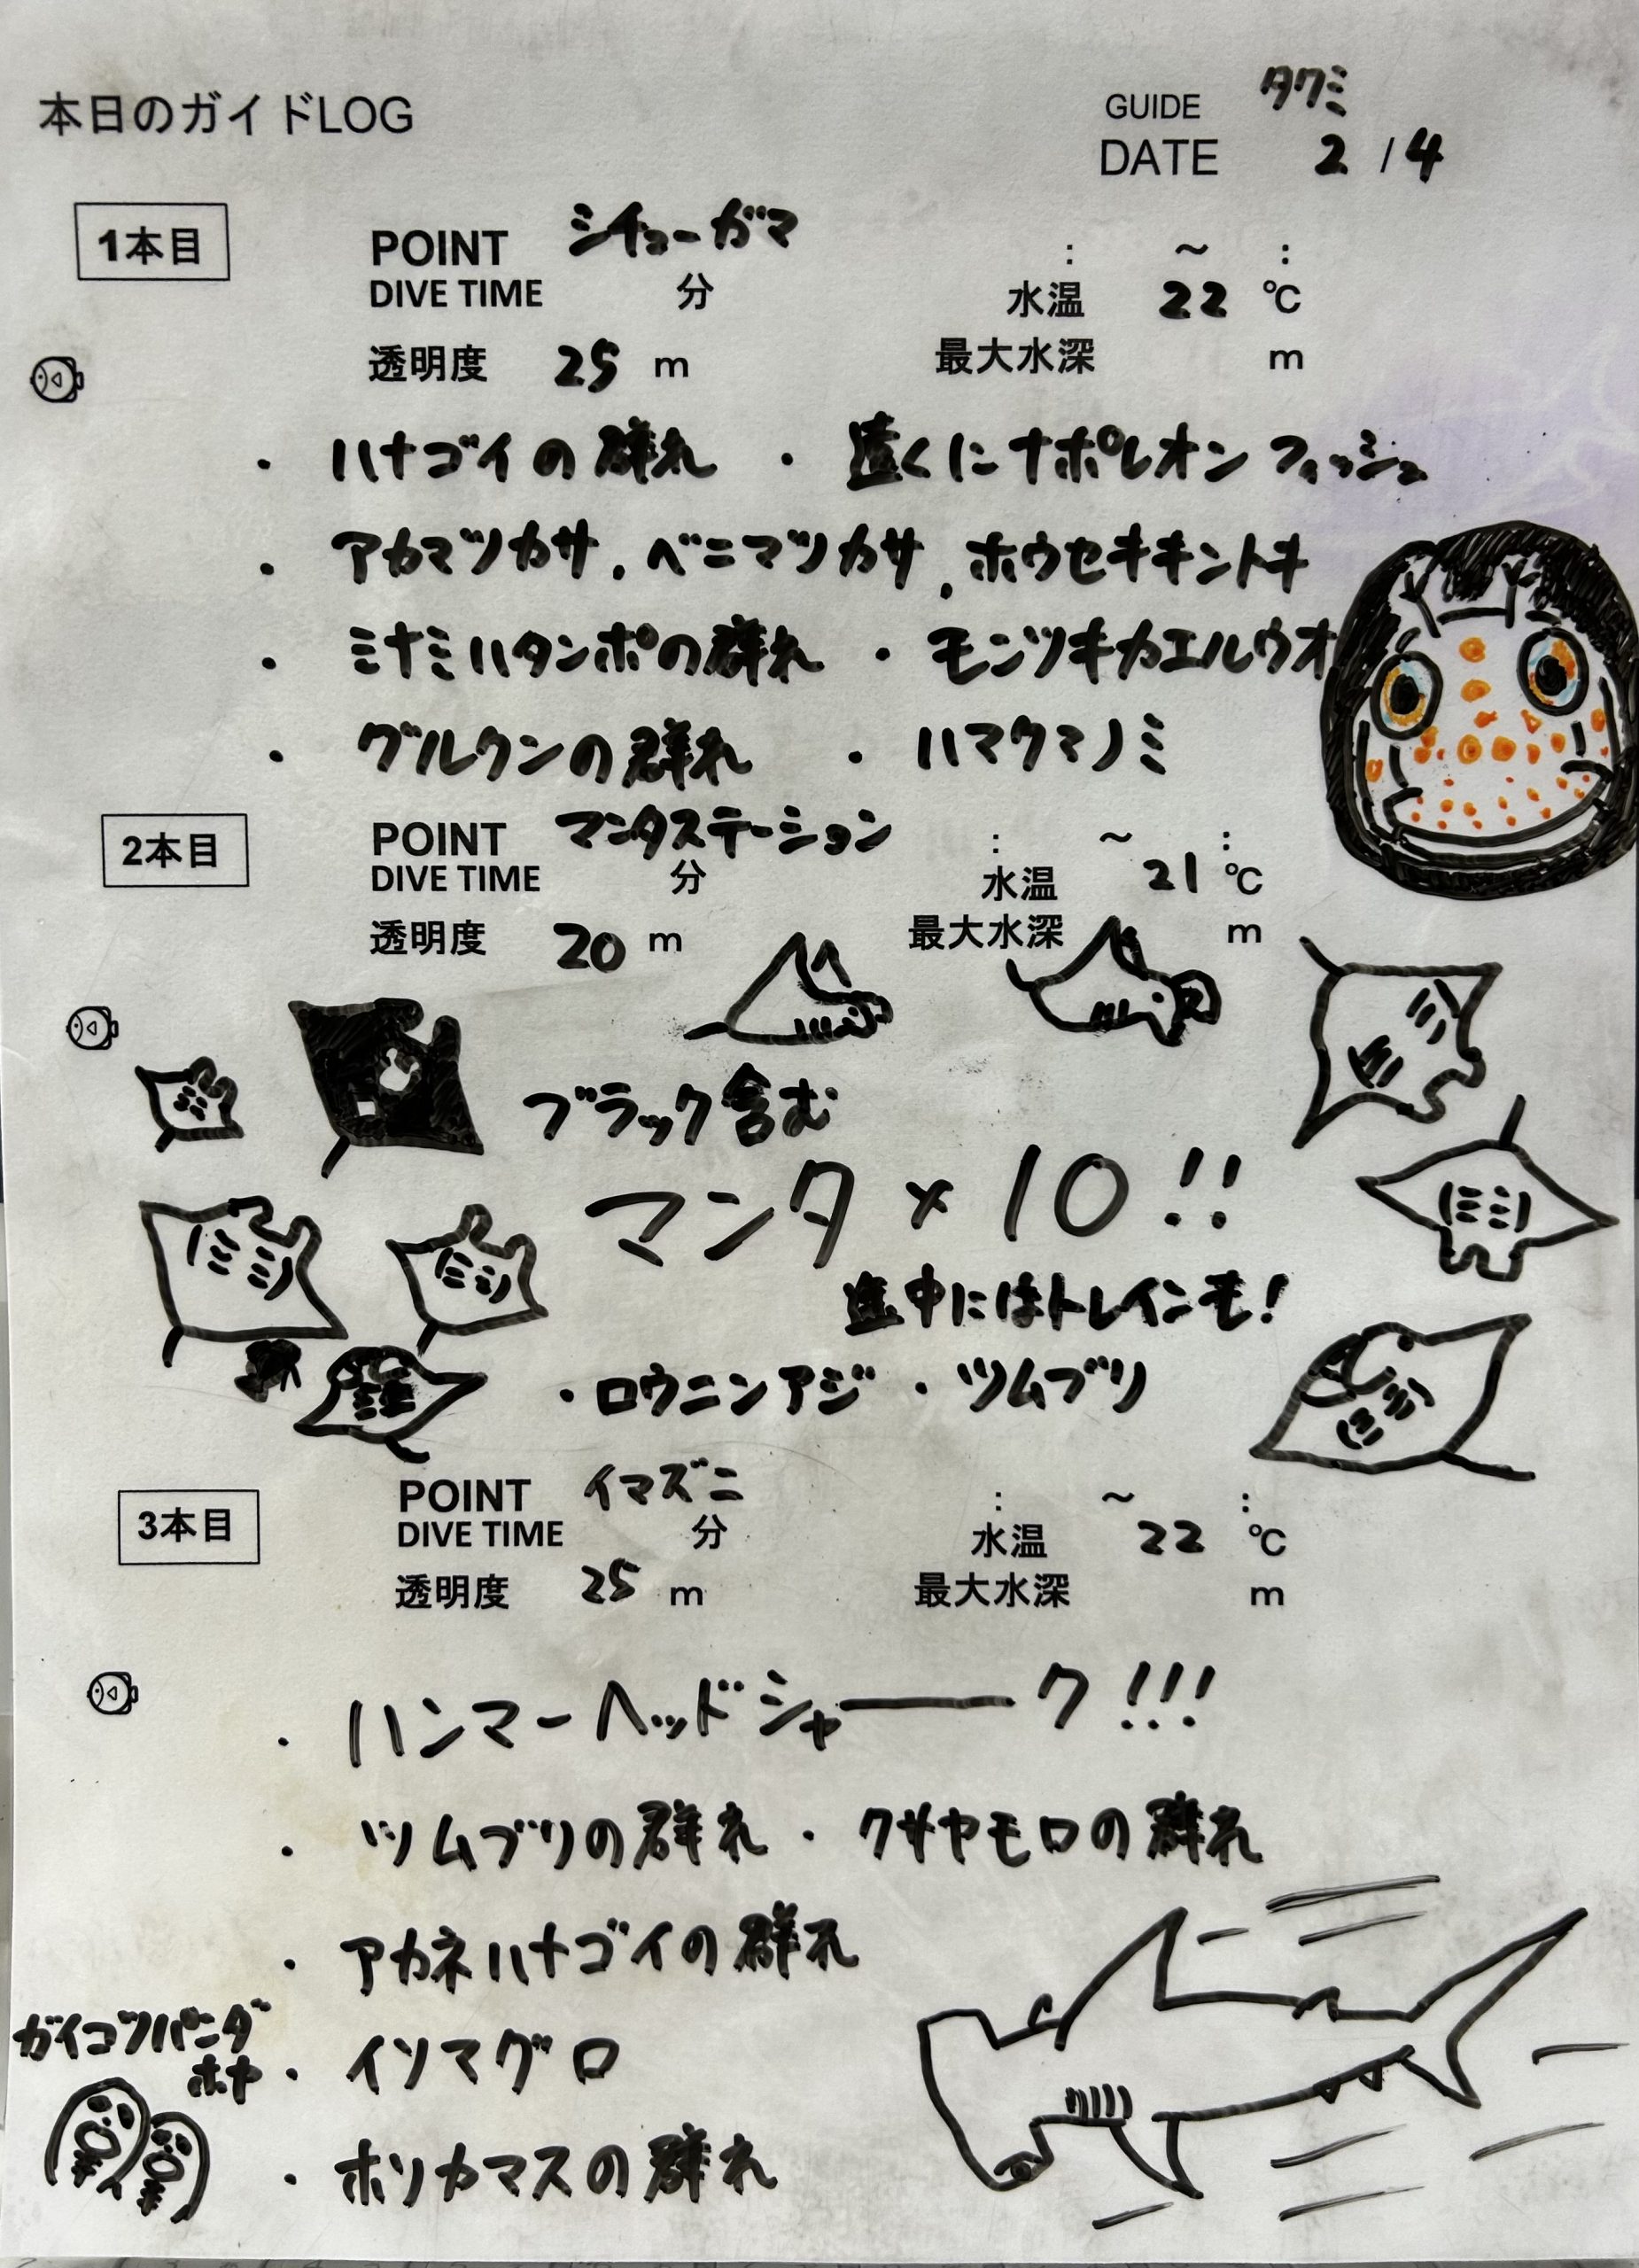 本日のガイドLOG
GUIDE タクミ
DATE 2 / 4
1本目
POINT シチューガマ : ~ :
DIVE TIME 分 水温 22 ℃
透明度 25 m 最大水深 m
・ハナゴイの群れ ・遠くにナポレオンフィッシュ
・アカマツカサ、ベニマツカサ、ホウセキキントキ
・ミナミハタンポの群れ ・モンツキカエルウオ
・グルクンの群れ ・ハマクマノミ
2本目
POINT マンタステーション : ~ :
DIVE TIME 分 水温 21 ℃
透明度 20 m 最大水深 m
ブラック含む
マンタ×10!!
途中にはトレインも!
・ロウニンアジ ・ツムブリ
3本目
POINT イマズニ : ~ :
DIVE TIME 分 水温 22 ℃
透明度 25 m 最大水深 m
・ハンマーヘッドシャーーク!!!
・ツムブリの群れ ・クサヤモロの群れ
・アカネハナゴイの群れ
ガイコツパンダ
ホヤ
・イソマグロ
・ホソカマスの群れ